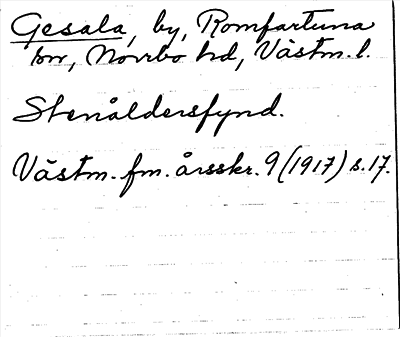 Gesala, by, Romfartuna
sn, Norrbo hd, Västm. l.
Stenåldersfynd.
Västm. fm. årsskr. 9 (1917) s. 17.